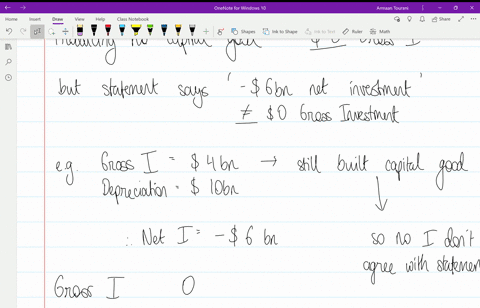 OneNote for Windows 10
Armaan Tourani
Home Insert Draw View Help Class Notebook
Shapes Ink to Shape Ink to Text Ruler Math
no capital good $0 Gross I
but statement says '-$6bn net investment'
≠ $0 Gross Investment
e.g. Gross I = $4bn → still built capital good
Depreciation = $10bn
∴ Net I = -$6 bn
so no I don't
agree with statement
Gross I 0